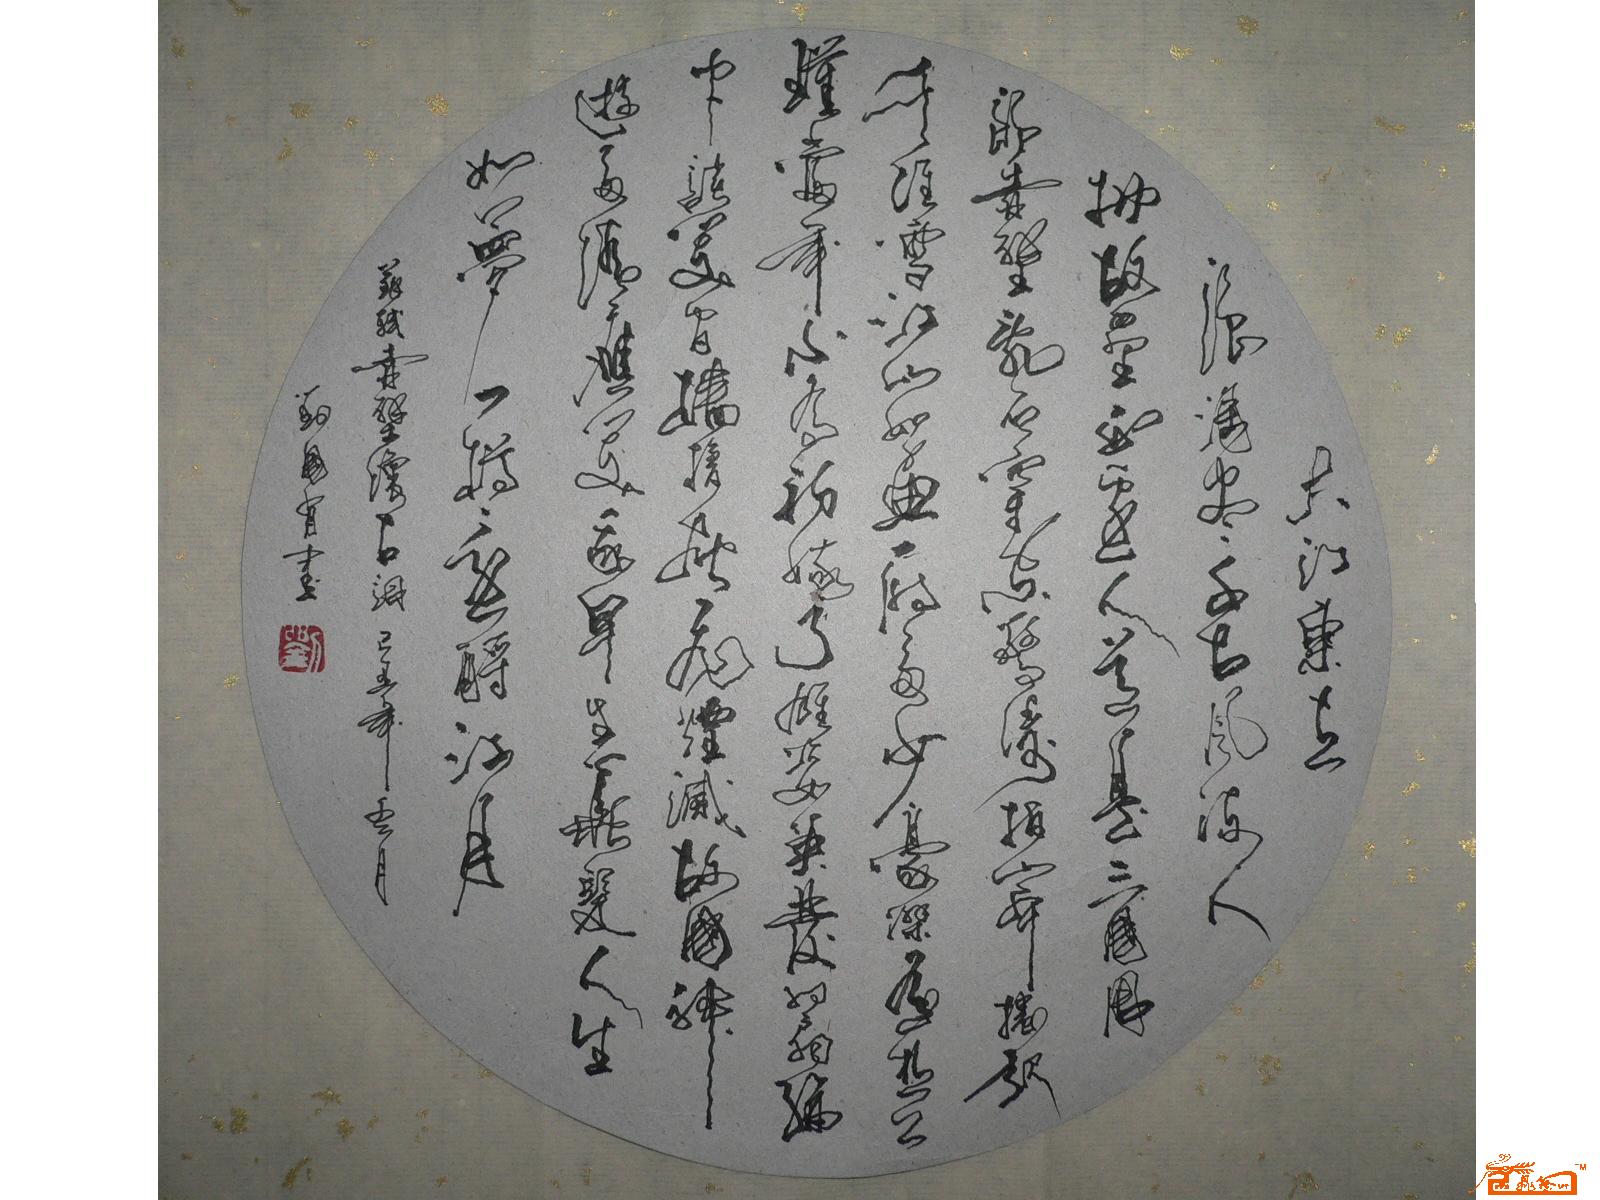 大江東去
浪淘盡千古風流人
物故壘西邊人道是三國周
郎赤壁亂石穿空驚濤拍岸捲起
千堆雪江山如畫一時多少豪傑遙想公
瑾當年小喬初嫁了雄姿英發羽扇綸
巾談笑間檣櫓灰飛煙滅故國神
遊多情應笑我早生華髮人生
如夢一樽還酹江月
蘇軾赤壁懷古詞 己丑年五月
劉國書